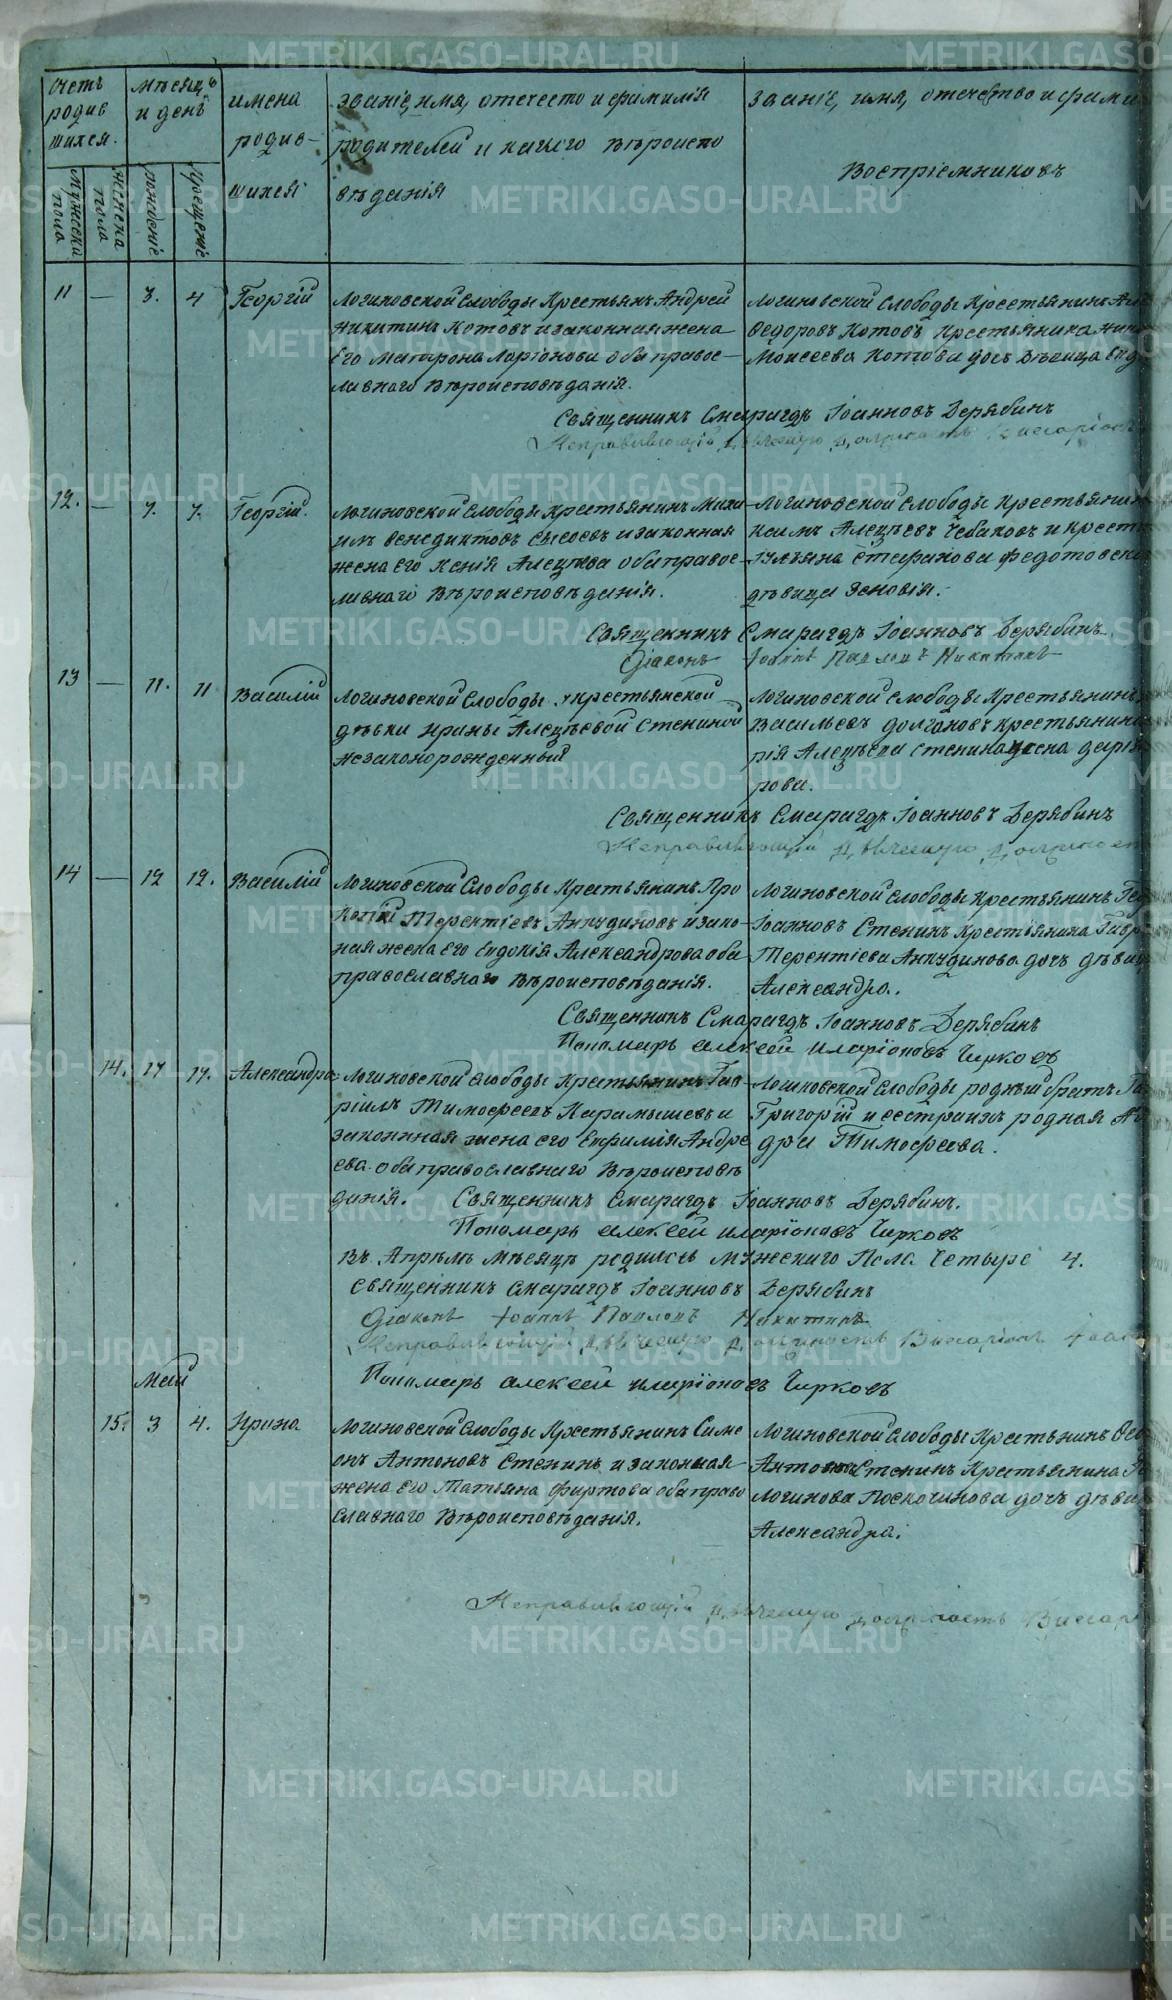 Счетъ родив шихся.
Мѣсяцъ и день
имена родив- шихся
званіе, имя, отечество и фамилія
родителей и какаго вѣроиспо
вѣданія
званіе, имя, отечество и фами
Воспріемниковъ
Мужеска пола
Женска пола
рожденіе
крещеніе
11 — 3. 4 Георгій
Логиновской Слободы Крестьянъ Андрей
Никитинъ Котовъ и законная жена
Его Матрона Ларіонова оба правос-
лавнаго Вѣроисповѣданія.
Логиновской Слободы Крестьянинъ
Ѳедоровъ Котовъ Крестьянина
Моисеева Котова дочь дѣвица
Священникъ Смарагдъ Іоанновъ Дерябинъ
Исправляющій дьяческую должность Висаріонъ
12. — 7. 7. Георгій.
Логиновской Слободы Крестьянинъ Миха
илъ Венедиктовъ Сысоевъ и законная
жена Его Ксенія Алеѯѣева оба правос-
лавнаго Вѣроисповѣданія.
Логиновской Слободы Крестьянинъ
Алеѯѣевъ Чебаковъ и крест
Ульяна Стефанова Федотовск
дѣвица Зеновія.
Священникъ Смарагдъ Іоанновъ Дерябинъ.
Діаконъ Іоаннъ Павловъ Никитинъ
13 — 11. 11 Василій
Логиновской Слободы крестьянской
дѣвки Ирины Алеѯѣевой Стениной
незаконорожденный
Логиновской Слободы Крестьянинъ
Васильевъ Долгановъ крестьянин
рія Алеѯѣева Стенина
рова.
Священникъ Смарагдъ Іоанновъ Дерябинъ
Исправляющій дьяческую должност
14 — 12 12. Василій
Логиновской Слободы Крестьянинъ Про
копій Терентіевъ Анкудиновъ и зако-
ная жена Его Евдокія Александрова оба
православнаго Вѣроисповѣданія.
Логиновской Слободы Крестьянинъ
Іоанновъ Стенинъ Крестьянина Гавр
Терентіева Анкудинова дочь дѣвиц
Александра.
Священникъ Смарагдъ Іоанновъ Дерябинъ
Пономарь Алексѣй Иларіоновъ Чирковъ
14. 17 17. Александра
Логиновской Слободы Крестьянинъ Гав-
ріилъ Тимофеевъ Карамышевъ и
законная жена его Евфимія Андре
ева оба православнаго Вѣроисповѣ
данія.
Логиновской Слободы родный братъ
Григорій и сестра ихъ родная
дра Тимофеева.
Священникъ Смарагдъ Іоанновъ Дерябинъ.
Пономарь Алексѣй Иларіоновъ Чирковъ
Въ Апрѣлѣ Мѣсяцѣ родилось Мужескаго Пола Четыре 4.
Священникъ Смарагдъ Іоанновъ Дерябинъ
Діаконъ Іоаннъ Павловъ Никитинъ
Исправляющій дьяческую должность Висаріонъ
Пономарь Алексѣй Иларіоновъ Чирковъ
Май
15. 3 4. Ирина
Логиновской Слободы Крестьянинъ Симе
онъ Антоновъ Стенинъ и законная
жена Его Татьяна Фирсова оба право
славнаго Вѣроисповѣданія.
Логиновской Слободы Крестьянинъ
Антоновъ Стенинъ Крестьянина
Логинова Поскочинова дочь дѣвиц
Александра.
Исправляющій дьяческую должность Висар
METRIKI.GASO-URAL.RU